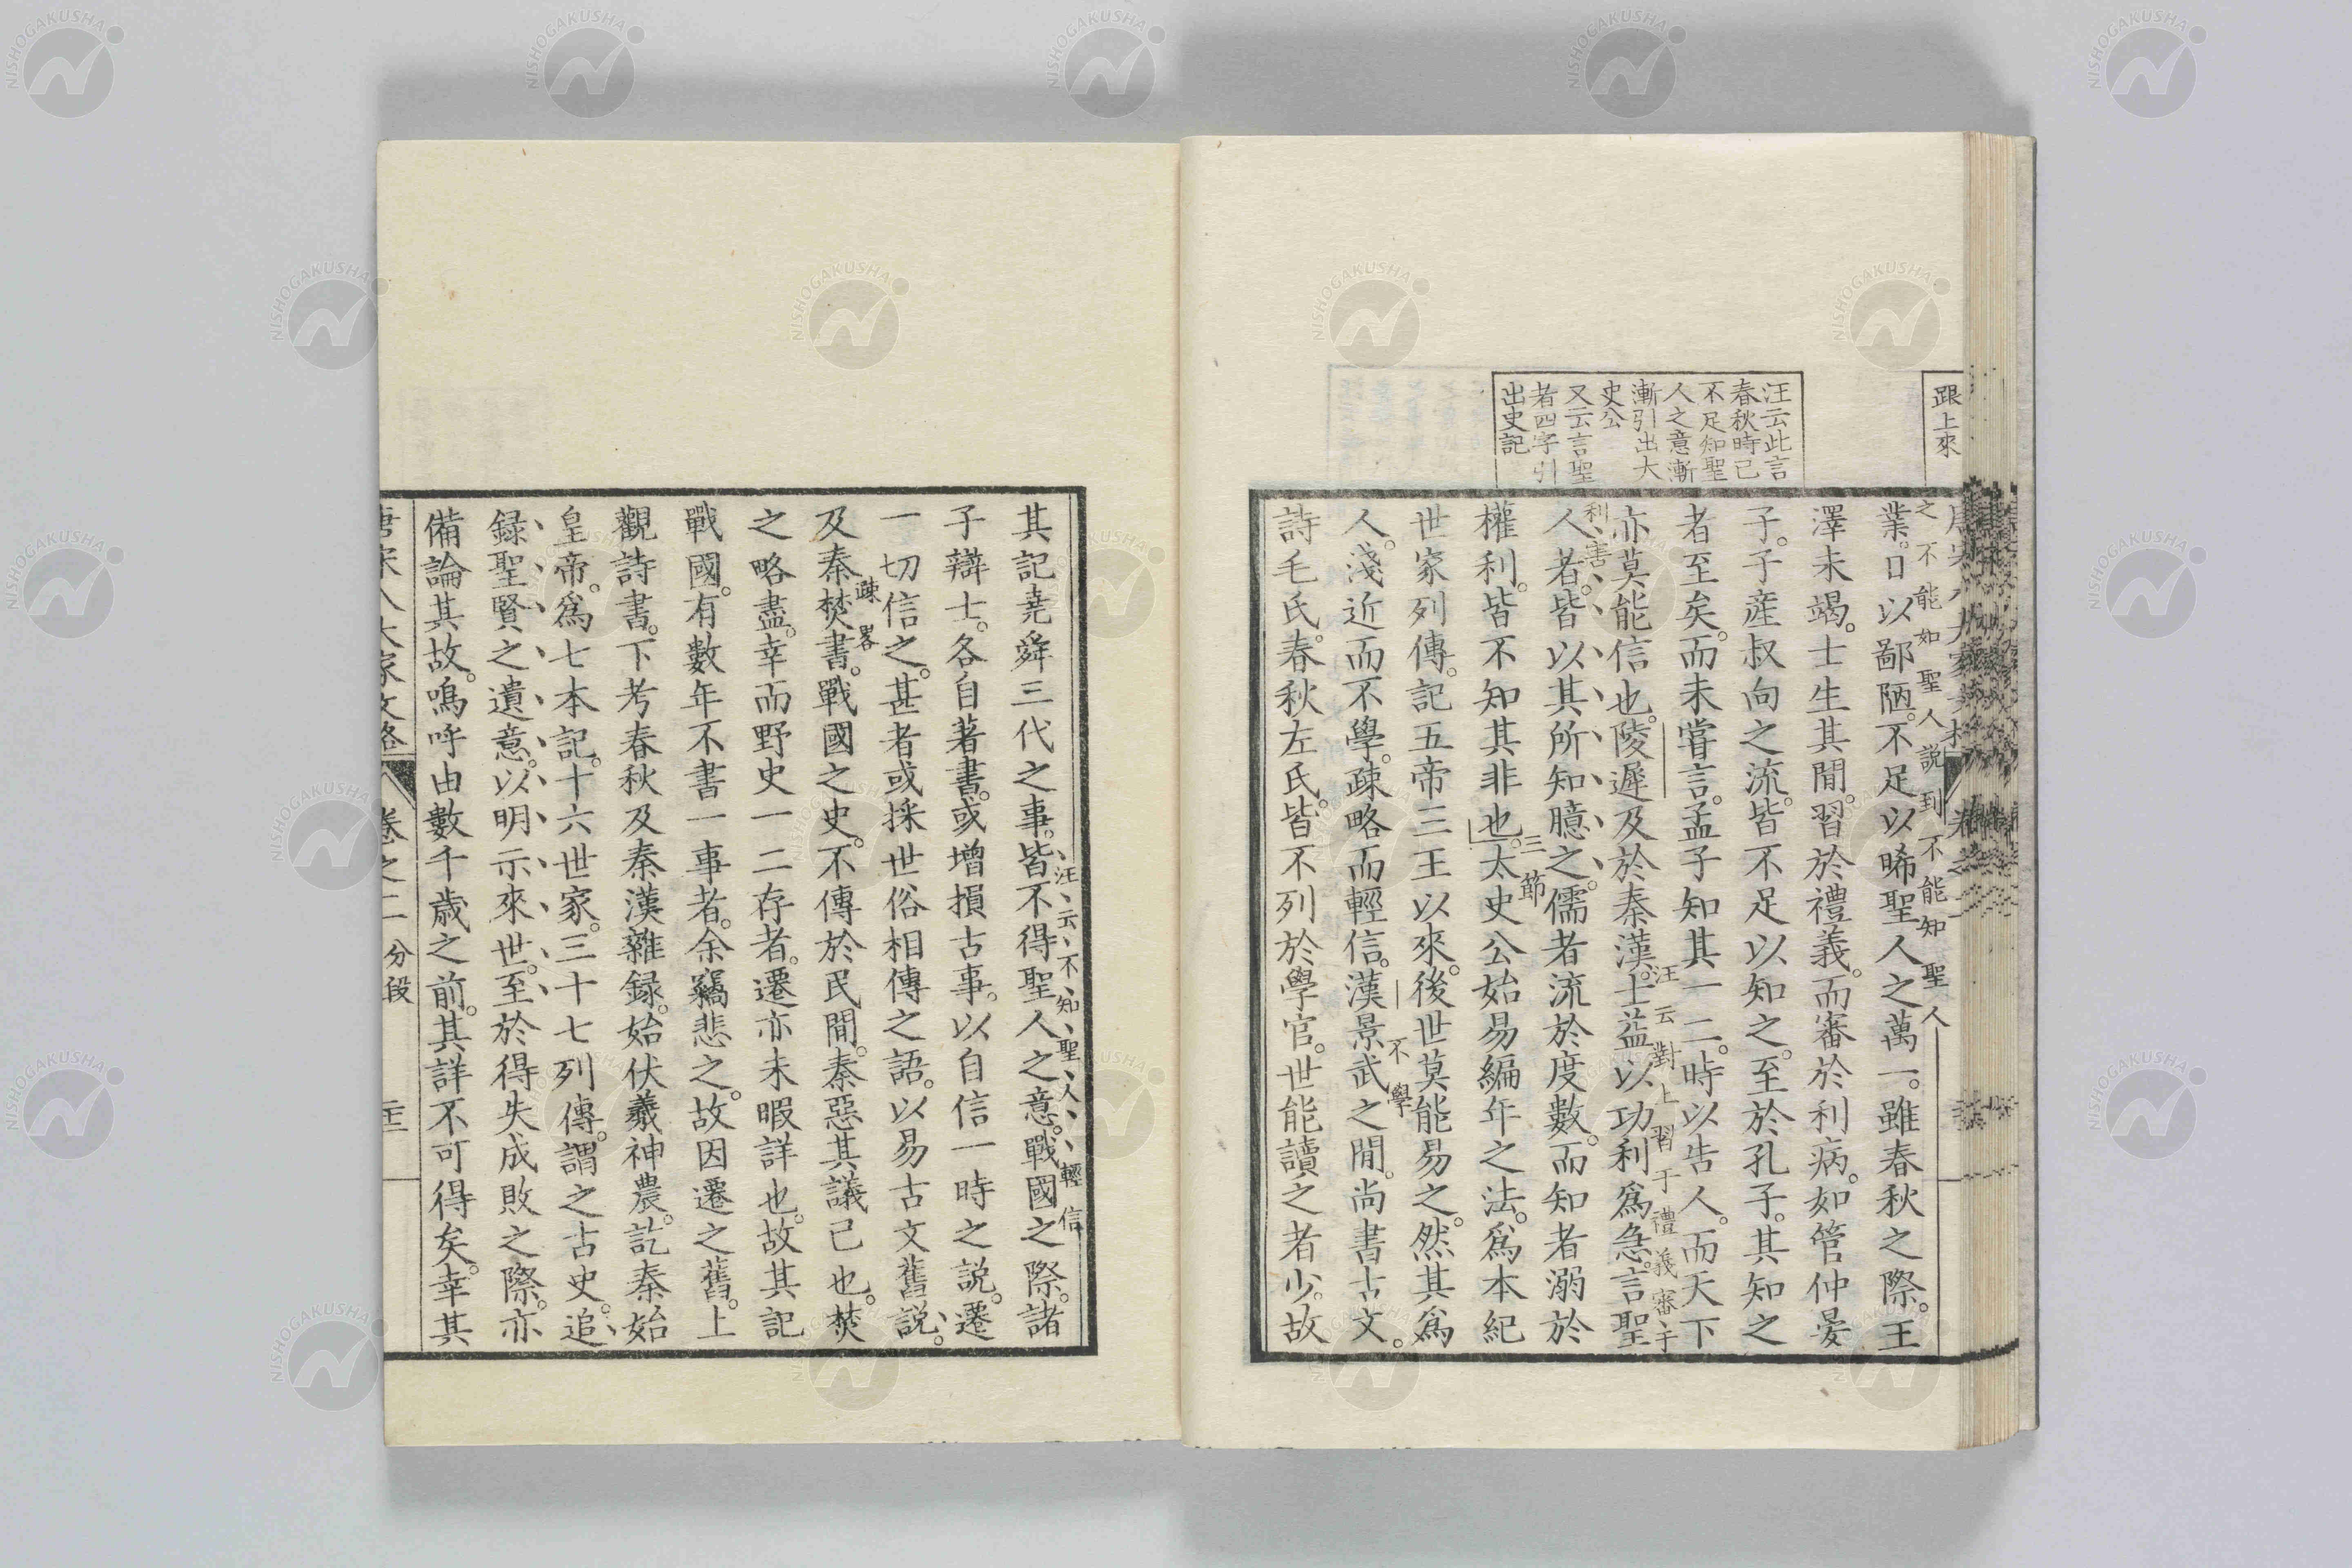 跟上來
汪云此言
春秋時已
不足知聖
人之意漸
漸引出大
史公
又云言聖
者四字引
出史記
之不能如聖人說到不能知聖人
業。口以鄙陋。不足以晞聖人之萬一。雖春秋之際。王
澤未竭。士生其間。習於禮義。而審於利病。如管仲晏
子。子產叔向之流。皆不足以知之。至於孔子。其知之
者至矣。而未嘗言。孟子知其一二。時以告人。而天下
汪云對上習于禮義審于
利害
亦莫能信也。陵遲及於秦漢。士益以功利爲急。言聖
人者。皆以其所知臆之。儒者流於度數。而知者溺於
三節
權利。皆不知其非也。太史公始易編年之法。爲本紀
世家列傳。記五帝三王以來。後世莫能易之。然其爲
不學
人。淺近而不學。疎略而輕信。漢景武之間。尚書古文。
詩毛氏。春秋左氏。皆不列於學官。世能讀之者少。故
汪云不知聖人輕信
其記堯舜三代之事。皆不得聖人之意。戰國之際。諸
子辯士。各自著書。或增損古事。以自信一時之説。遷
一切信之。甚者或採世俗相傳之語。以易古文舊説。
疎畧
及秦焚書。戰國之史。不傳於民間。秦惡其議己也。焚
之略盡。幸而野史一二存者。遷亦未暇詳也。故其記
戰國。有數年不書一事者。余竊悲之。故因遷之舊。上
觀詩書。下考春秋及秦漢雜録。始伏羲神農。訖秦始
皇帝。爲七本記。十六世家。三十七列傳。謂之古史。追
録聖賢之遺意。以明示來世。至於得失成敗之際。亦
備論其故。嗚呼由數千歳之前。其詳不可得矣。幸其
唐宋八大家文格 卷之二 分段